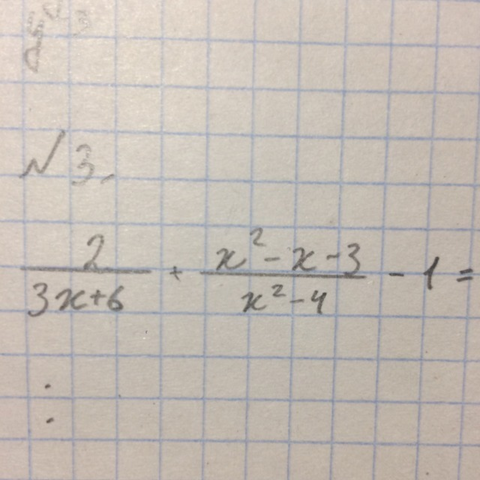 № 3.
2/(3x+6) + (x²-x-3)/(x²-4) - 1 =